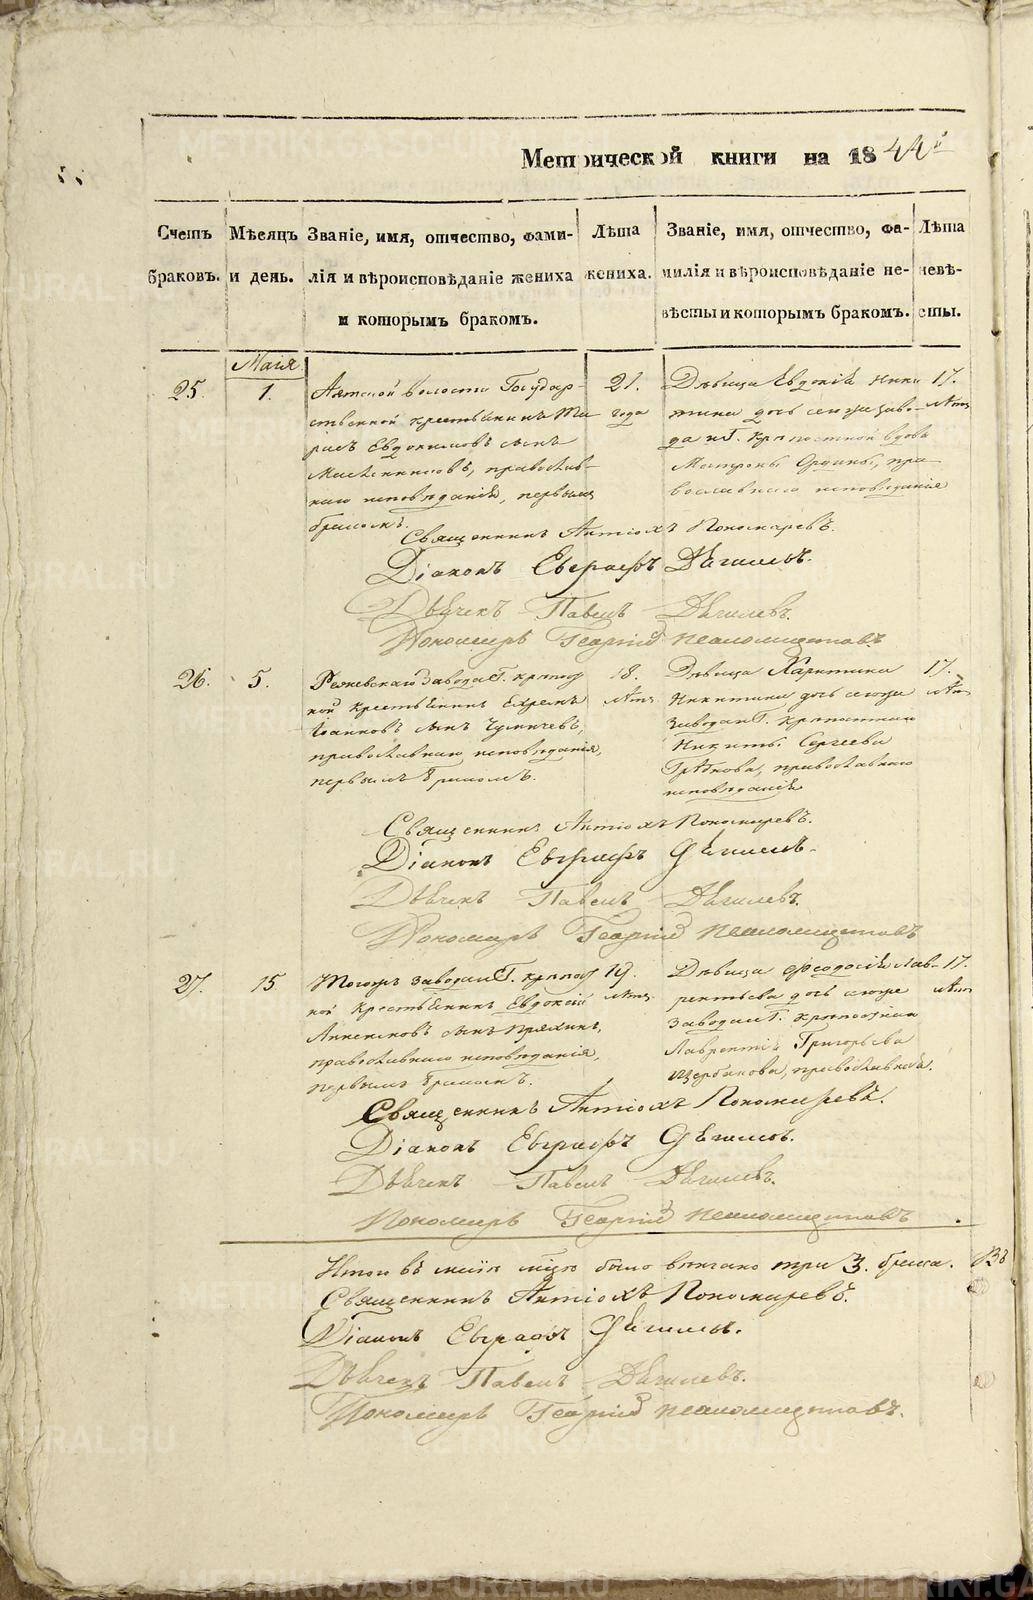 Метрической книги на 1844й
Счетъ браковъ.
Мѣсяцъ и день.
Званіе, имя, отчество, фами-
лія и вѣроисповѣданіе жениха
и которымъ бракомъ.
Лѣта жениха.
Званіе, имя, отчество, фа-
милія и вѣроисповѣданіе не-
вѣсты и которымъ бракомъ.
Лѣта невѣ-
сты.
Маія
25.
1.
Аятской волости Государ-
ственной крестьянинъ
Евдокимовъ сынъ
православ-
наго исповѣданія, первымъ
бракомъ.
21.
года
Дѣвица Евдокія Ники
тина дочь сегоже заво-
да Г. крѣпостной вдовы
Матроны пра-
вославнаго исповѣданія
17.
лѣтъ
Священникъ Антіохъ Пономаревъ.
Діаконъ Евграфъ Дягилевъ.
Дьячекъ Павелъ Дягилевъ.
Пономарь Георгій Псаломщиковъ
26.
5.
Режевскаго завода Г. крѣпост
ной крестьянинъ Ефремъ
Іоанновъ сынъ
православнаго исповѣданія,
первымъ бракомъ.
18.
лѣтъ
Дѣвица Харитина
Никитина дочь сегоже
завода Г. крѣпостнаго
Никиты Сергеева
православнаго
исповѣданія
17.
лѣтъ
Священникъ Антіохъ Пономаревъ.
Діаконъ Евграфъ Дягилевъ.
Дьячекъ Павелъ Дягилевъ.
Пономарь Георгій Псаломщиковъ
27.
15.
Тогожъ завода Г. крѣпост
ной крестьянинъ Евдокій
сынъ Пряхинъ,
православнаго исповѣданія,
первымъ бракомъ.
19.
лѣтъ.
Дѣвица Феодосія Лав-
рентьева дочь сегоже
завода Г. крѣпостнаго
Лаврентія Григорьева
Щербакова, православной.
17.
лѣтъ
Священникъ Антіохъ Пономаревъ.
Діаконъ Евграфъ Дягилевъ.
Дьячекъ Павелъ Дягилевъ.
Пономарь Георгій Псаломщиковъ
Итого въ маіи мцѣ было вѣнчано три 3. брака.
Священникъ Антіохъ Пономаревъ.
Діаконъ Евграфъ Дягилевъ.
Дьячекъ Павелъ Дягилевъ.
Пономарь Георгій Псаломщиковъ.
METRIKI.GASO-URAL.RU